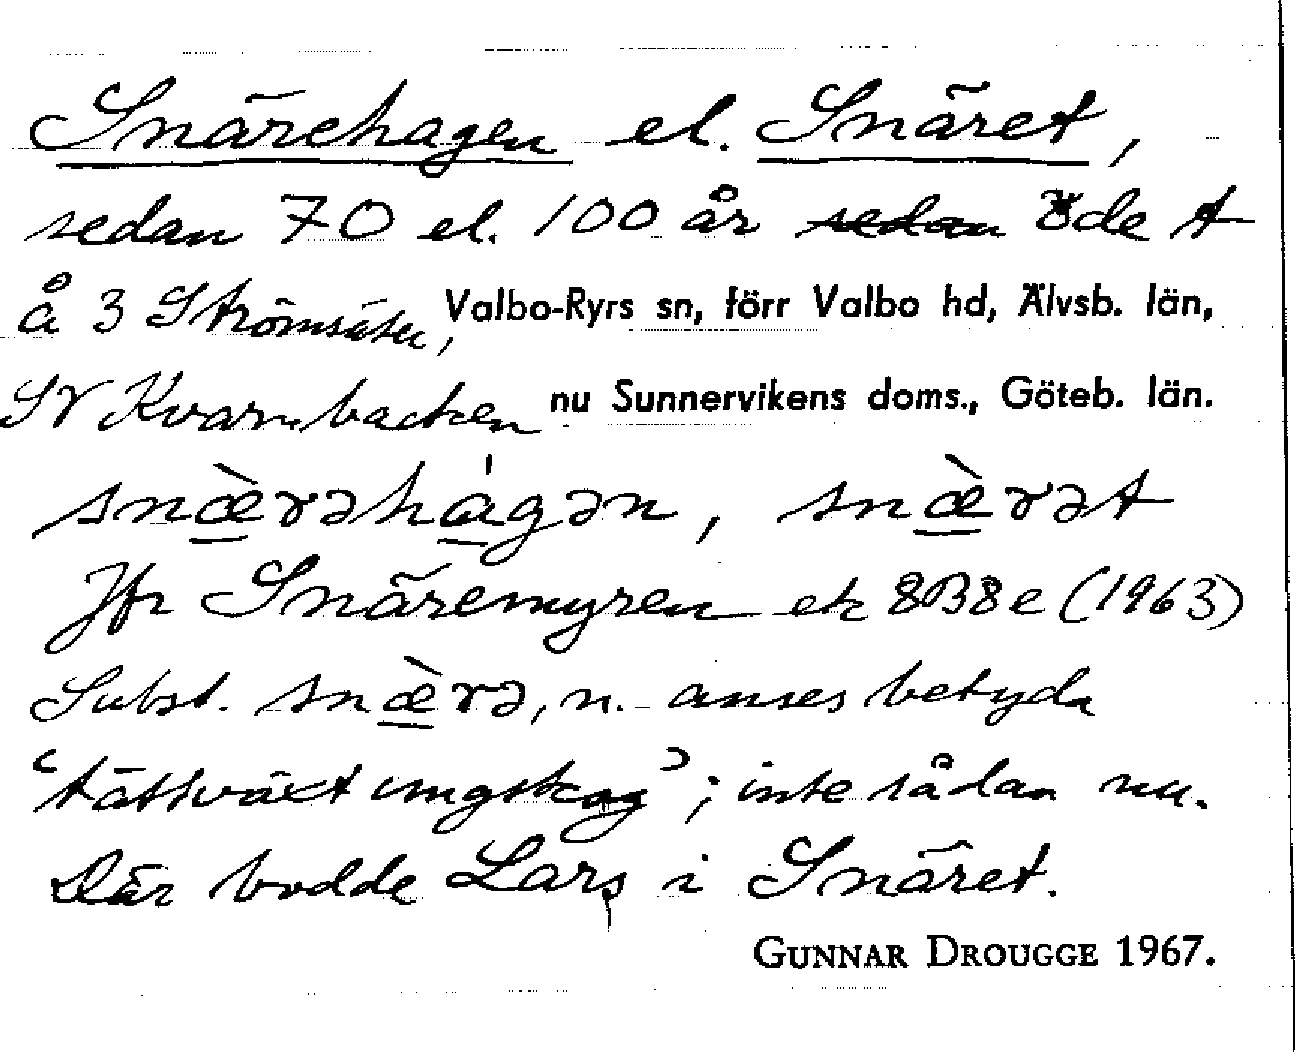 Snärehagen el. Snäret,
sedan 70 el. 100 år ~~sedan~~ öde t
å 3 Strömsäter, Valbo-Ryrs sn, förr Valbo hd, Älvsb. län,
SV Kvarnbacken nu Sunnervikens doms., Göteb. län.
snæ̀rəhágən, snæ̀rət
Jfr Snäremyren ek 8B8e (1963)
Subst. snæ̀rə, n. anses betyda
'tättväxt ungskog'; inte sådan nu.
Där bodde Lars i Snäret.
GUNNAR DROUGGE 1967.